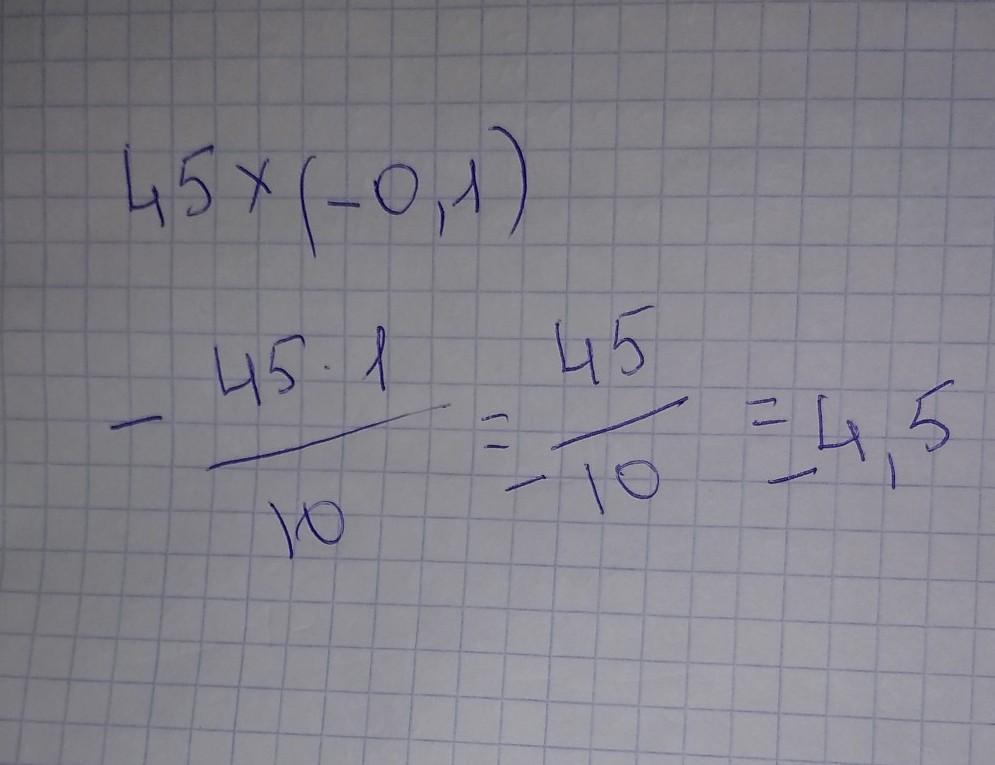 45×(-0,1)
- 45·1/10 = 45/-10 = -4,5